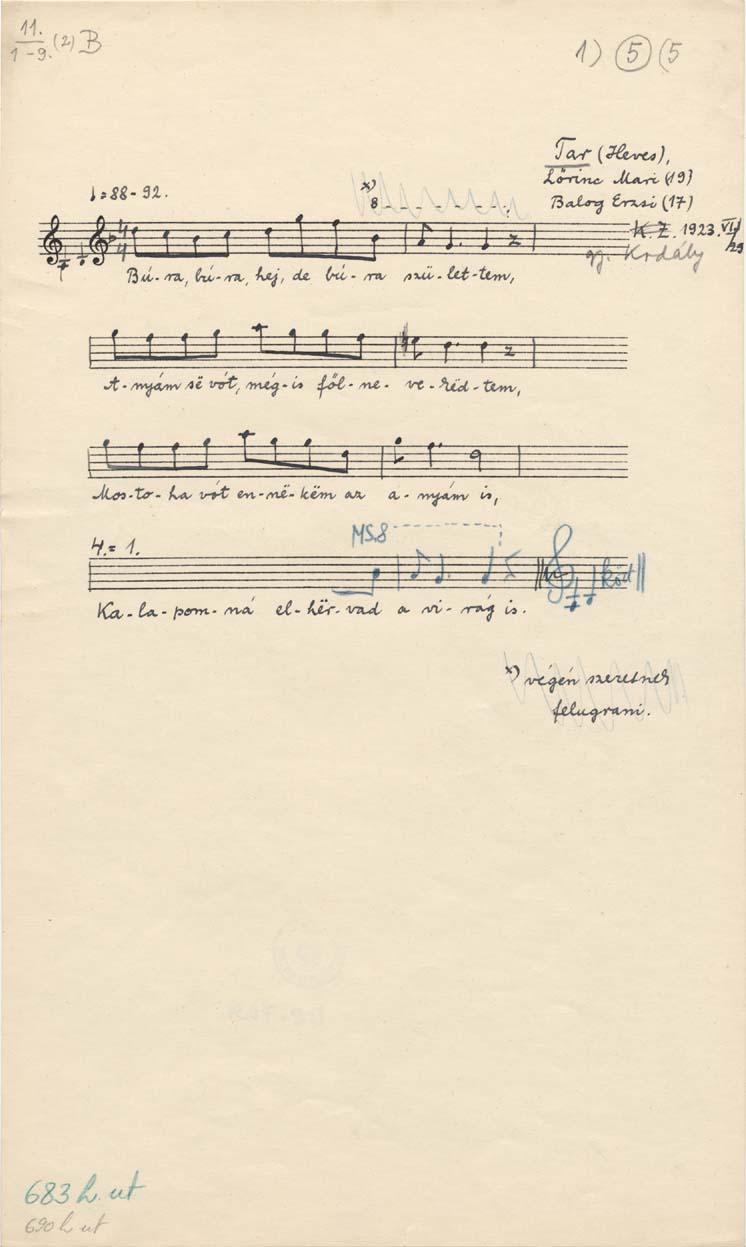 11.
1-9. (2) B
1) 5 (5
Tar (Heves),
Lőrinc Mari (19)
Balog Erzsi (17)
K. Z. 1923. VII/29
gy. Kodály
♩=88-92.
x)
8
4
4
Bú-ra, bú-ra, hej, de bú-ra szü-let-tem,
A-nyám së vót, még-is föl-ne-ve-rëd-tem,
Mos-to-ha vót en-në-këm az a-nyám is,
MS.8
4.= 1.
Ka-la-pom-ná el-hër-vad a vi-rág is.
x) végén szeretnek
felugrani.
683 h. ut
690 h ut